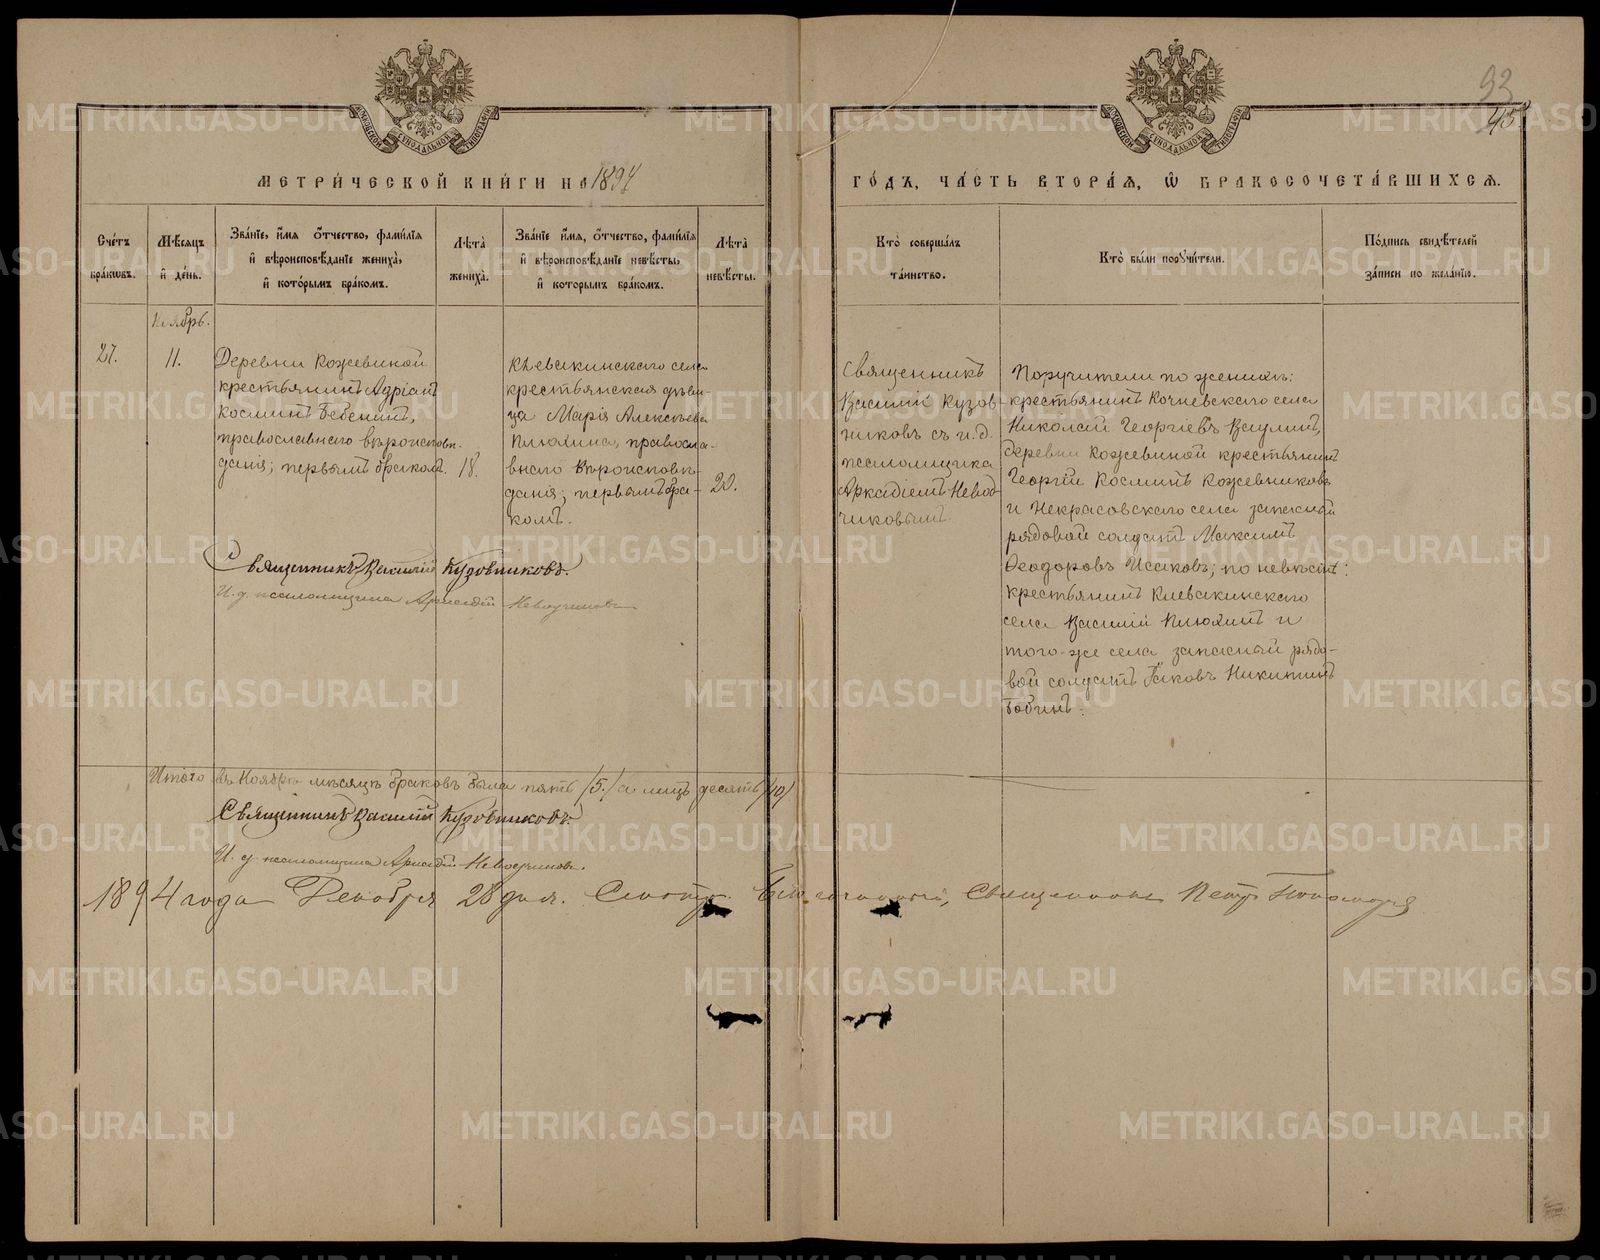 93
45
МЕТРИЧЕСКОЙ КНИГИ НА 1894
ГОДЪ, ЧАСТЬ ВТОРАЯ, Ѡ БРАКОСОЧЕТАВШИХСЯ.
Счетъ браковъ.
Мѣсяцъ и день.
Званіе, имя, отчество, фамилія и вѣроисповѣданіе жениха, и которымъ бракомъ.
Лѣта жениха.
Званіе, имя, отчество, фамилія и вѣроисповѣданіе невѣсты, и которымъ бракомъ.
Лѣта невѣсты.
Кто совершалъ таинство.
Кто были поручители.
Подпись свидѣтелей записи по желанію.
Ноябрь.
27.
11.
Деревни Кожевиной
крестьянинъ Адріанъ
Косминъ Бабинъ,
православнаго вѣроисповѣ-
данія; первымъ бракомъ.
18.
Клевакинскаго села
крестьянская дѣви-
ца Марія Алексѣева
Плюхина, правосла-
внаго вѣроисповѣ-
данія; первымъ бра-
комъ.
20.
Священникъ
Василій Кузов-
никовъ съ и. д.
псаломщика
Аркадіемъ Невод-
чиковымъ.
Поручители по женихѣ:
крестьянинъ Кочневскаго села
Николай Георгіевъ Ваулинъ,
деревни Кожевиной крестьянинъ
Георгій Косминъ Кожевниковъ
и Некрасовскаго села запасный
рядовой солдатъ Максимъ
Ѳеодоровъ Исаковъ; по невѣстѣ:
крестьянинъ Клевакинскаго
села Василій Плюхинъ и
того-же села запасный рядо-
вой солдатъ Іаковъ Никитинъ
Бабинъ.
Священникъ Василій Кузовниковъ.
И. д. псаломщика Аркадій Неводчиковъ
Итого въ Ноябрѣ мѣсяцѣ браковъ было пять /5./ а лицъ десять /10/
Священникъ Василій Кузовниковъ.
И. д. псаломщика Аркадій Неводчиковъ.
1894 года Декабря 28 дня. Смотр. Благочинный, Священникъ Петръ Пономаревъ
METRIKI.GASO-URAL.RU